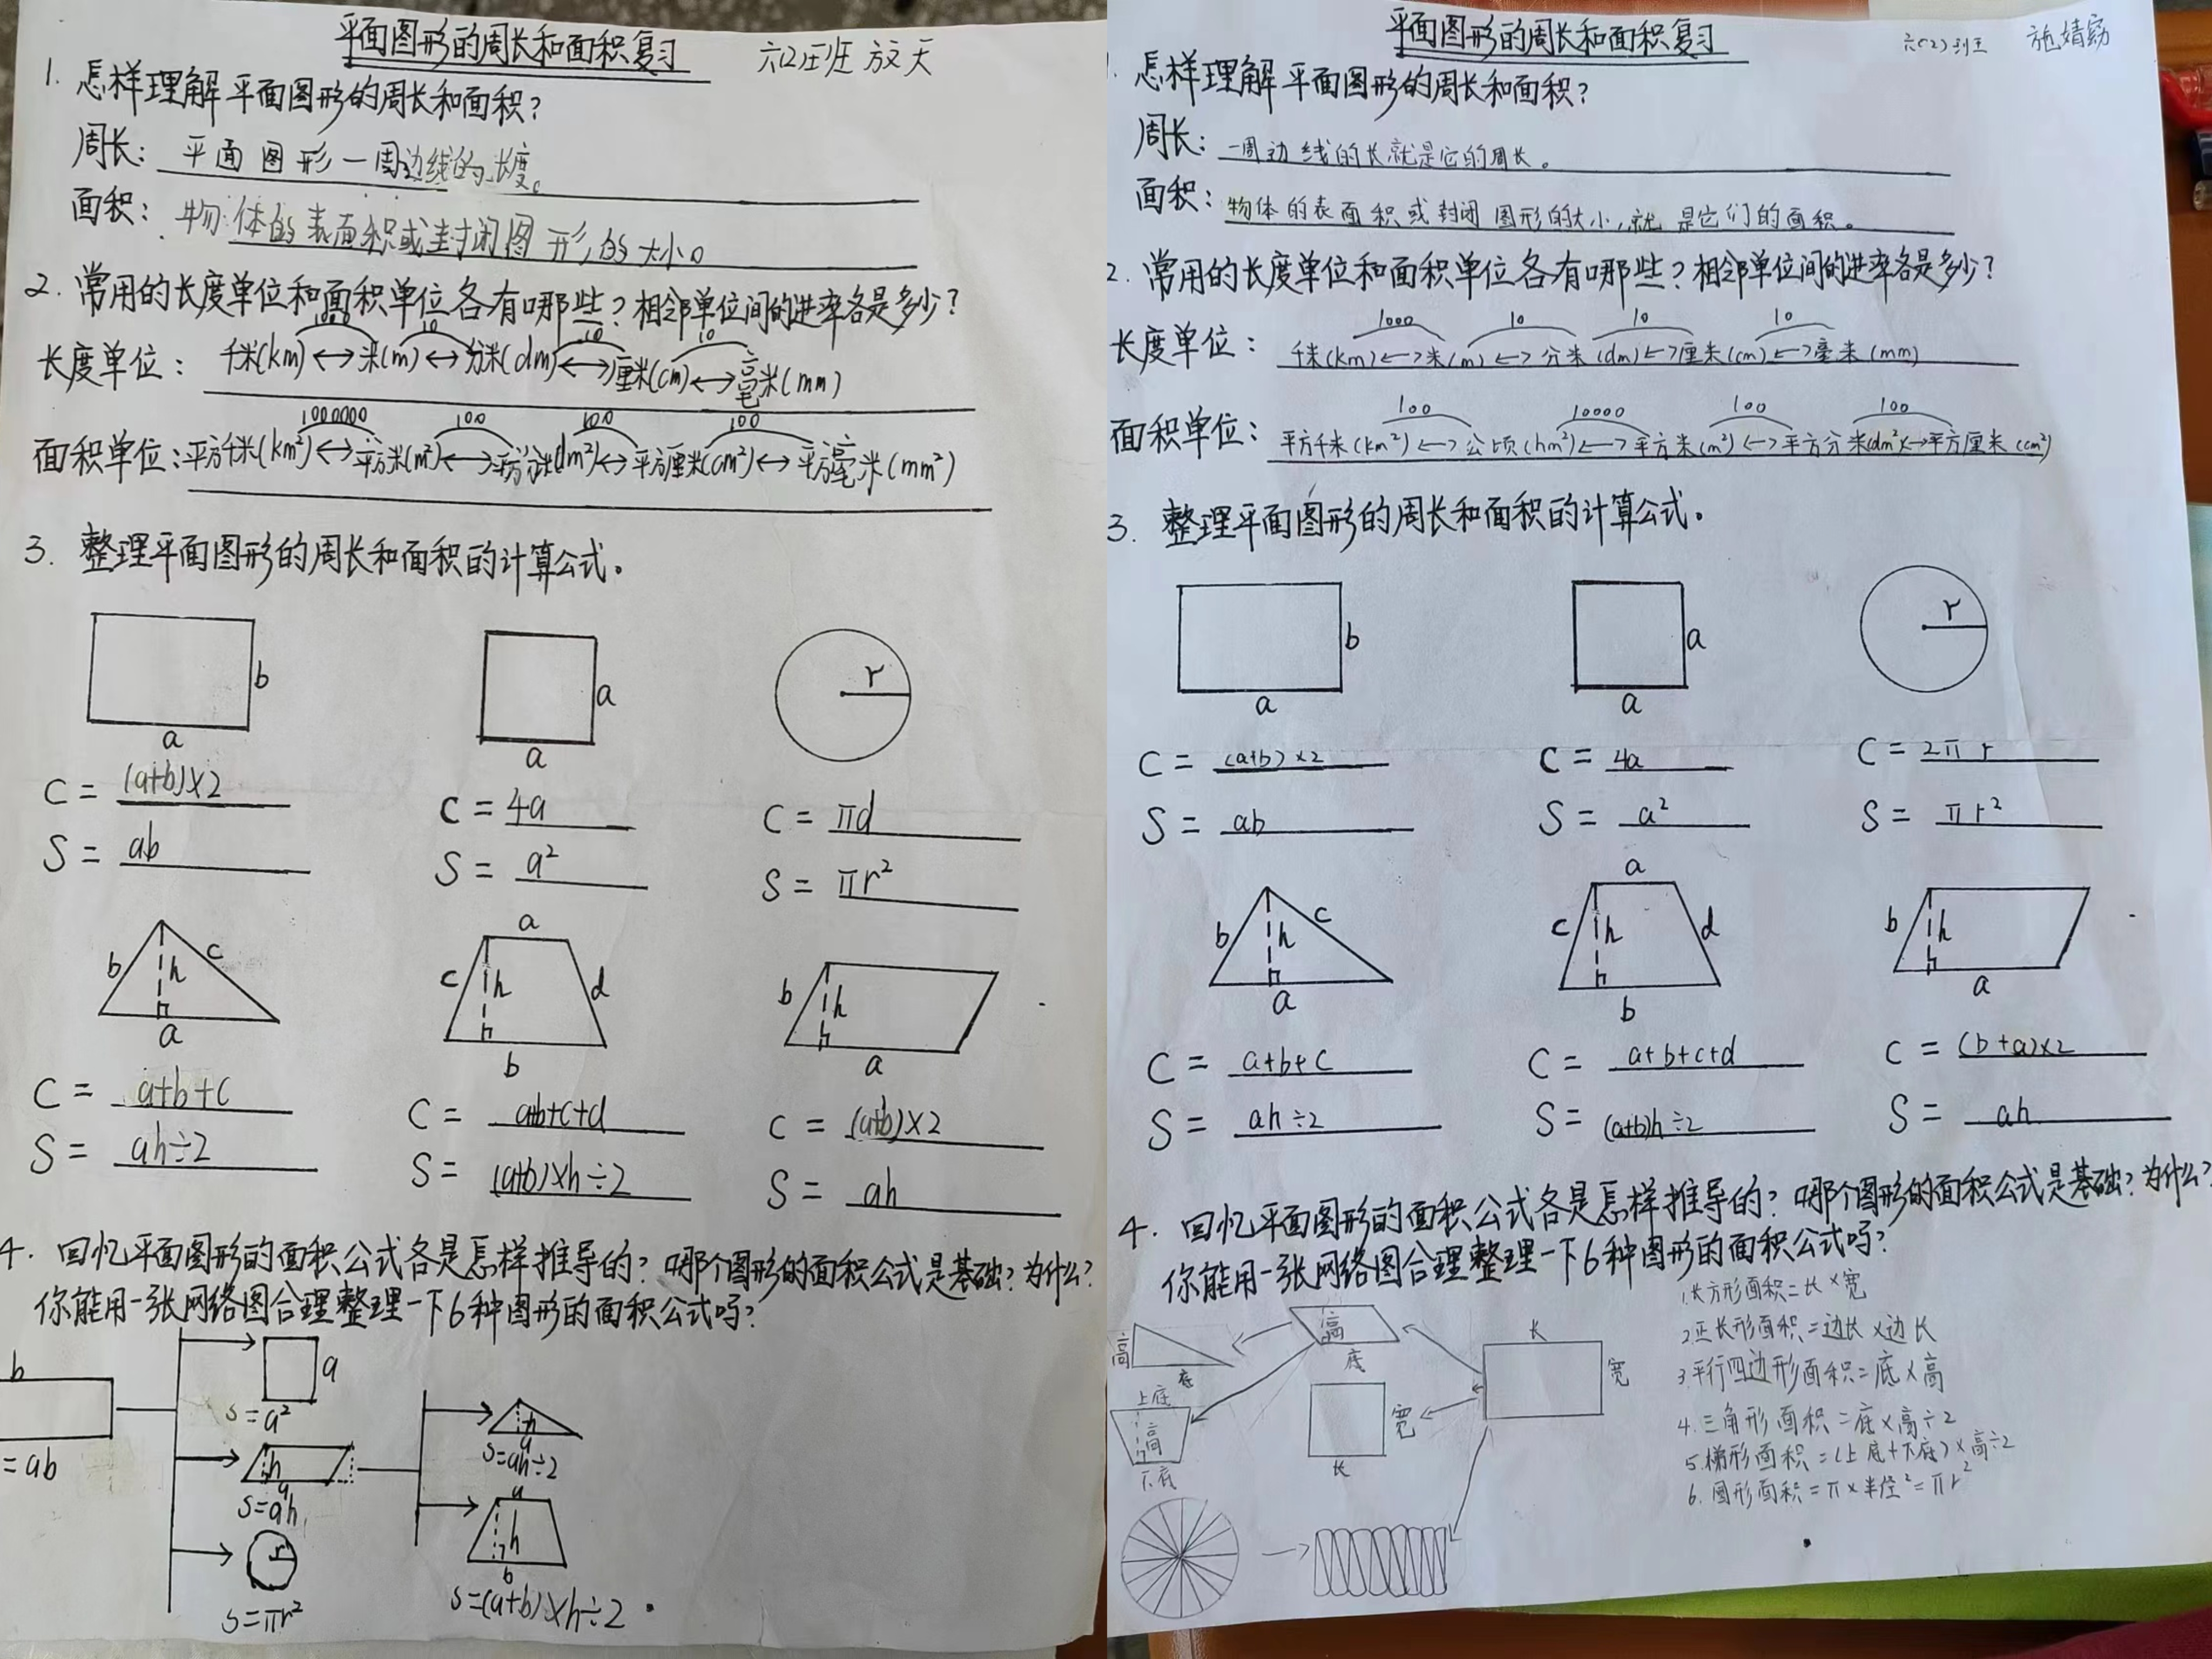 平面图形的周长和面积复习
六(2)班 放天
1. 怎样理解平面图形的周长和面积?
周长: 平面图形一周边线的长度。
面积: 物体的表面积或封闭图形的大小。
2. 常用的长度单位和面积单位各有哪些?相邻单位间的进率各是多少?
1000 10 10 10
长度单位: 千米(km)↔米(m)↔分米(dm)↔厘米(cm)↔毫米(mm)
1000000 100 100 100
面积单位:平方千米(km²)↔平方米(m²)↔平方分米(dm²)↔平方厘米(cm²)↔平方毫米(mm²)
3. 整理平面图形的周长和面积的计算公式。
b
a
a
a
r
C = (a+b)×2
C = 4a
C = πd
S = ab
S = a²
S = πr²
b h c
a
a
c h d
b
b h
a
C = a+b+c
C = a+b+c+d
C = (a+b)×2
S = ah÷2
S = (a+b)×h÷2
S = ah
4. 回忆平面图形的面积公式各是怎样推导的?哪个图形的面积公式是基础?为什么?
你能用一张网络图合理整理一下6种图形的面积公式吗?
b
=ab
a
S=a²
h
a
S=ah
r
S=πr²
h
a
S=ah÷2
a
h
b
S=(a+b)×h÷2
平面图形的周长和面积复习
六(2)班 施婧
. 怎样理解平面图形的周长和面积?
周长: 一周边线的长就是它的周长。
面积: 物体的表面积或封闭图形的大小,就是它们的面积。
2. 常用的长度单位和面积单位各有哪些?相邻单位间的进率各是多少?
1000 10 10 10
长度单位: 千米(km)↔米(m)↔分米(dm)↔厘米(cm)↔毫米(mm)
100 10000 100 100
面积单位: 平方千米(km²)↔公顷(hm²)↔平方米(m²)↔平方分米(dm²)↔平方厘米(cm²)
3. 整理平面图形的周长和面积的计算公式。
b
a
a
a
r
C = (a+b)×2
C = 4a
C = 2πr
S = ab
S = a²
S = πr²
b h c
a
a
c h d
b
b h
a
C = a+b+c
C = a+b+c+d
C = (b+a)×2
S = ah÷2
S = (a+b)h÷2
S = ah
4. 回忆平面图形的面积公式各是怎样推导的?哪个图形的面积公式是基础?为什么?
你能用一张网络图合理整理一下6种图形的面积公式吗?
高
底
高
底
长
宽
上底
高
下底
宽
长
1.长方形面积=长×宽
2.正长形面积=边长×边长
3.平行四边形面积=底×高
4.三角形面积=底×高÷2
5.梯形面积=(上底+下底)×高÷2
6.圆形面积=π×半径²=πr²